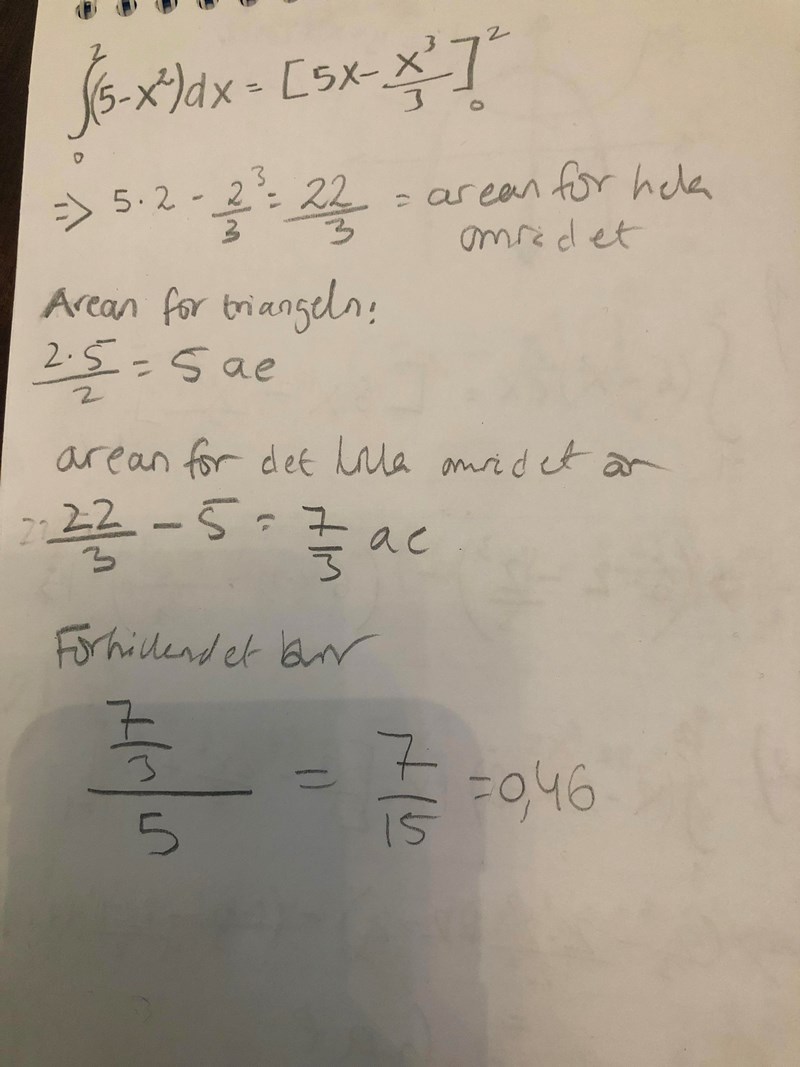 ∫₀²(5-x²)dx = [5x - x³/3]₀²
=> 5·2 - 2³/3 = 22/3 = arean for hela
området
Arean for triangeln:
2·5/2 = 5 ae
arean for det lilla området är
22/3 - 5 = 7/3 ae
Förhållandet blir
7/3 / 5 = 7/15 = 0,46